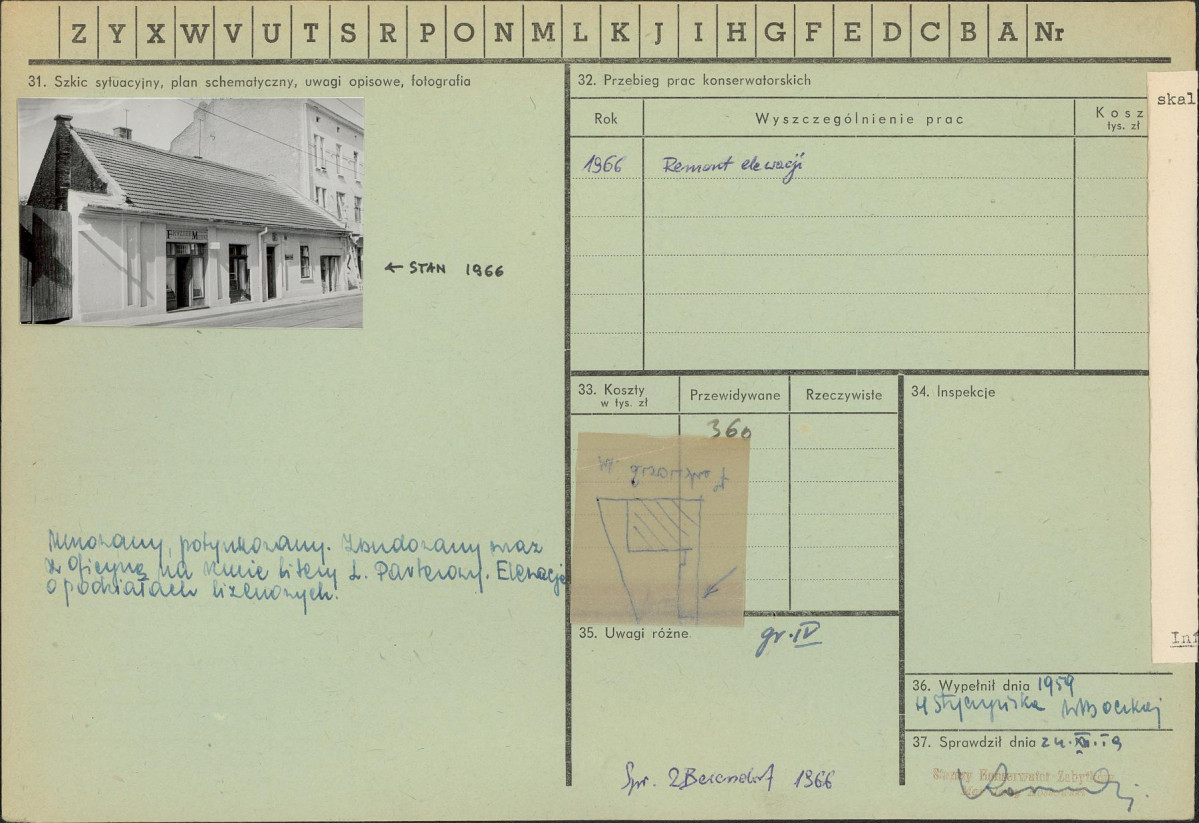 Z Y X W V U T S R P O N M L K J I H G F E D C B A Nr
31. Szkic sytuacyjny, plan schematyczny, uwagi opisowe, fotografia
← STAN 1966
Murowany, potynkowany. Zbudowany wraz
z oficyną na rzucie litery L. Parterowy. Elewacje
o podziałach lizenowych.
32. Przebieg prac konserwatorskich
Rok
Wyszczególnienie prac
Kosz
tys. zł
1966
Remont elewacji
skal
33. Koszty
w tys. zł
Przewidywane
Rzeczywiste
360
34. Inspekcje
35. Uwagi różne
gr. IV
Spr. 1966
Inf
36. Wypełnił dnia 1959
37. Sprawdził dnia 24.XII.59
Konserwator Zabytków